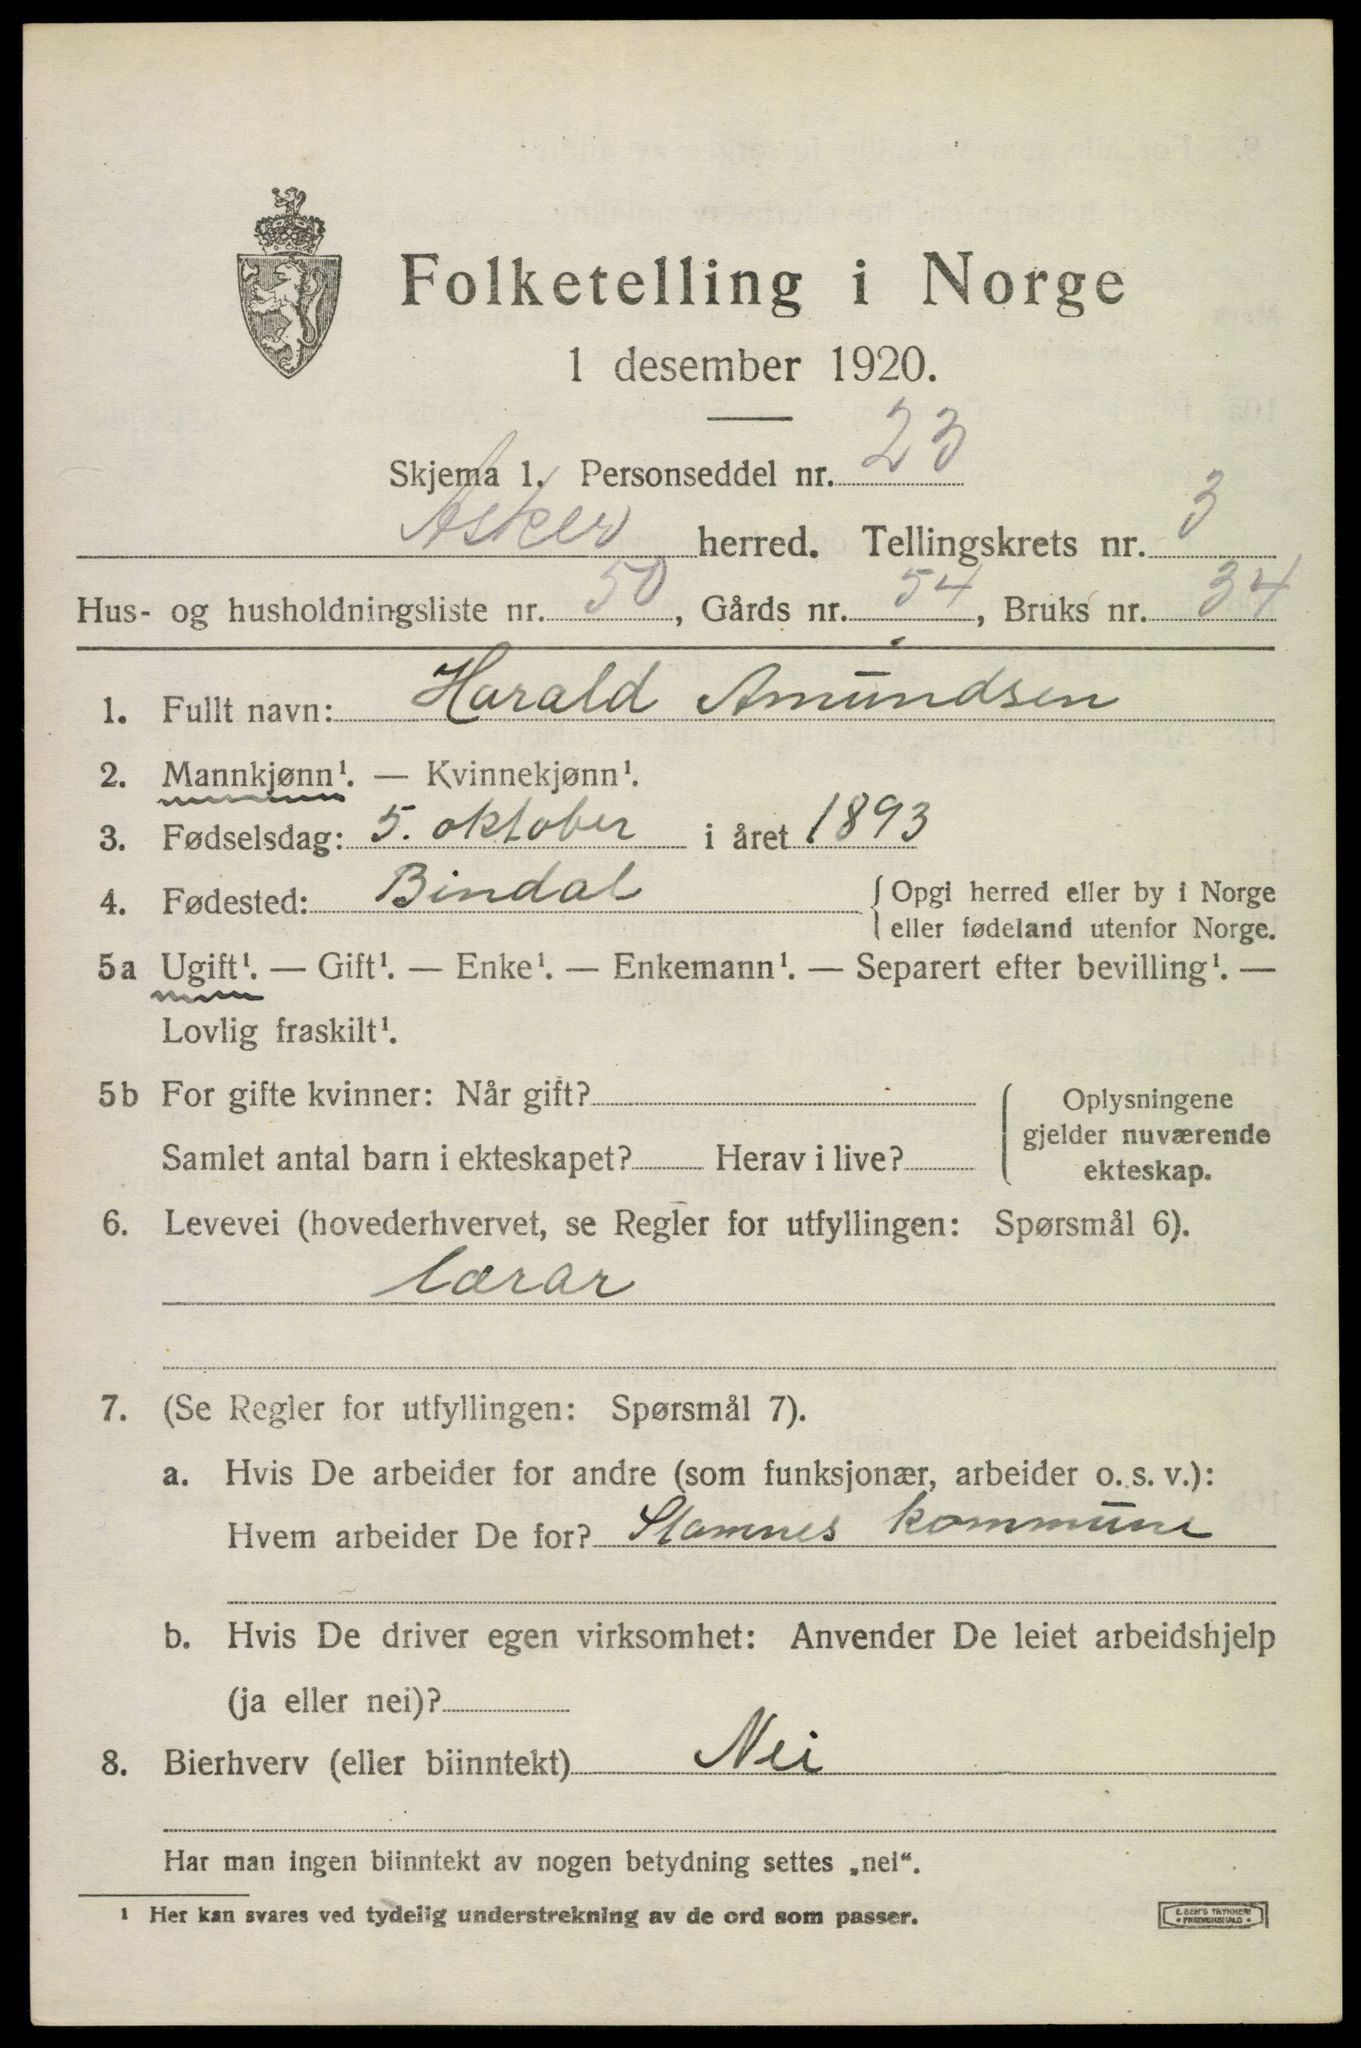 Folketelling i Norge
1 desember 1920.
Skjema 1. Personseddel nr. 23
Asker herred. Tellingskrets nr. 3
Hus- og husholdningsliste nr. 50, Gårds nr. 54, Bruks nr. 34
1. Fullt navn: Harald Amundsen
2. Mannkjønn¹. — Kvinnekjønn¹.
3. Fødselsdag: 5. oktober i året 1893
4. Fødested: Bindal { Opgi herred eller by i Norge
eller fødeland utenfor Norge.
5a Ugift¹. — Gift¹. — Enke¹. — Enkemann¹. — Separert efter bevilling¹. —
Lovlig fraskilt¹.
5b For gifte kvinner: Når gift? { Oplysningene
gjelder nuværende
Samlet antal barn i ekteskapet? Herav i live? ekteskap.
6. Levevei (hovederhvervet, se Regler for utfyllingen: Spørsmål 6).
lærar
7. (Se Regler for utfyllingen: Spørsmål 7).
a. Hvis De arbeider for andre (som funksjonær, arbeider o. s. v.):
Hvem arbeider De for? Stamnes kommune
b. Hvis De driver egen virksomhet: Anvender De leiet arbeidshjelp
(ja eller nei)?
8. Bierhverv (eller biinntekt) Nei
Har man ingen biinntekt av nogen betydning settes „nei“.
¹ Her kan svares ved tydelig understrekning av de ord som passer.